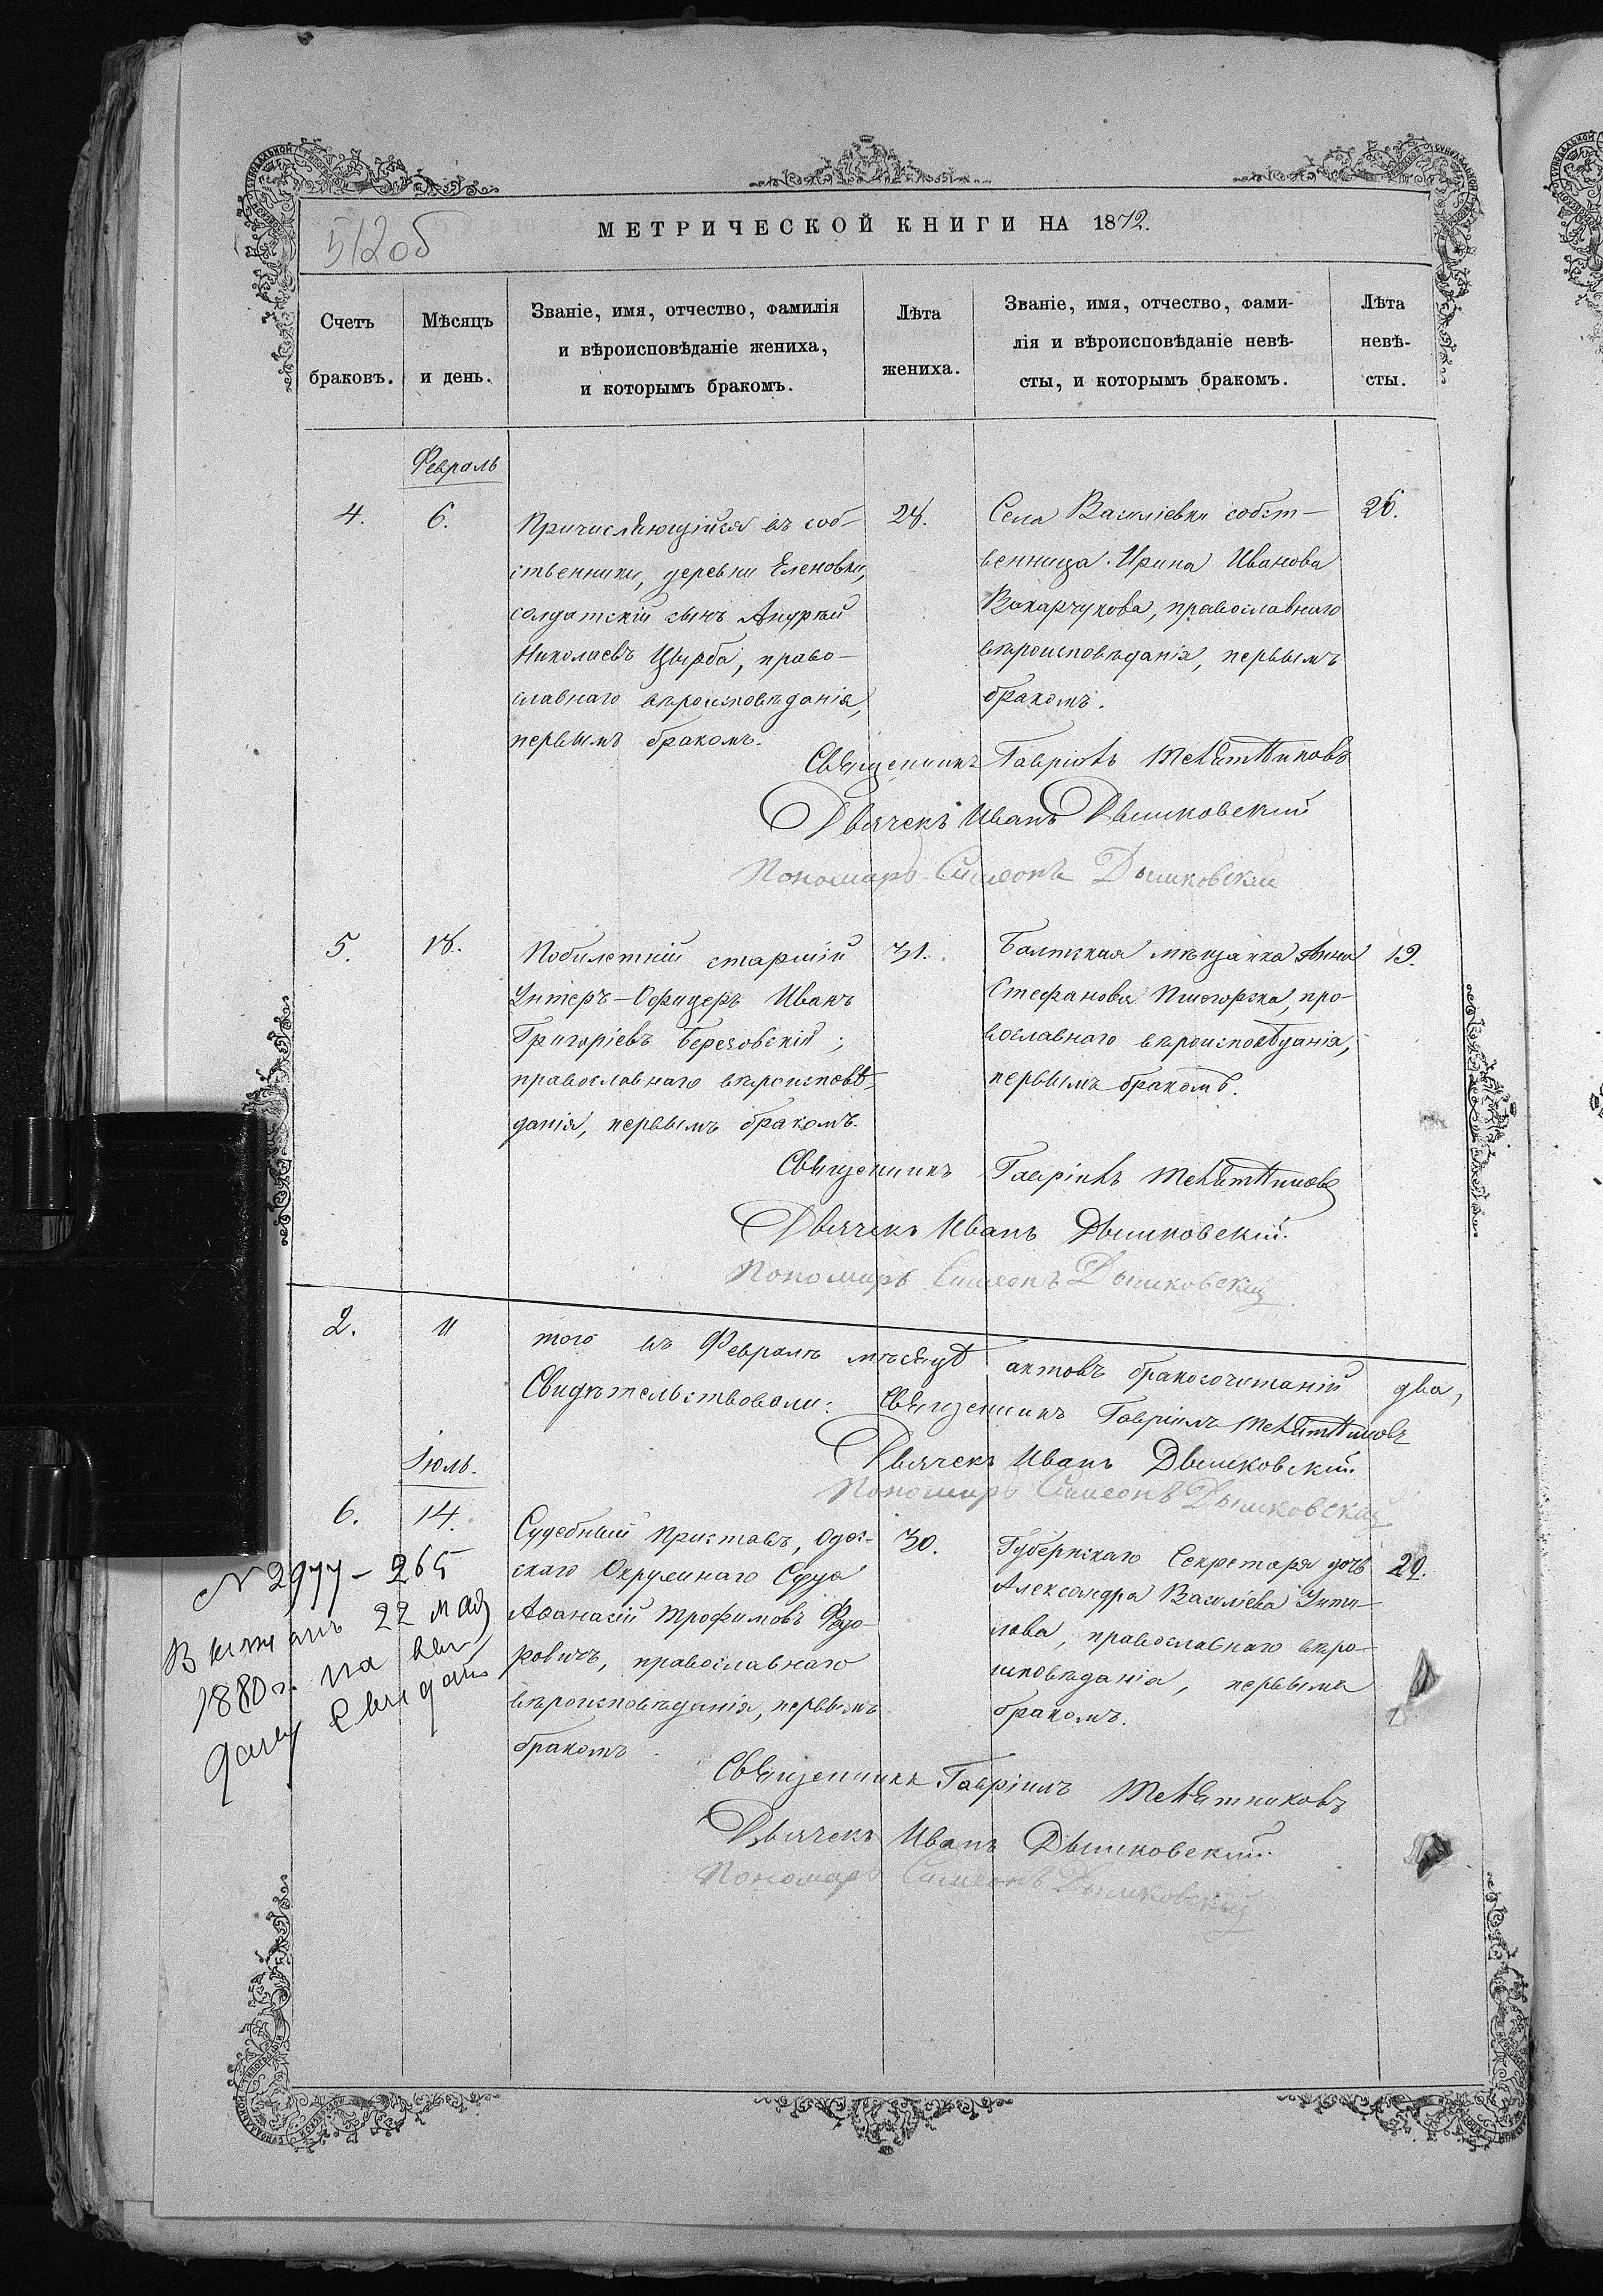 512об
МЕТРИЧЕСКОЙ КНИГИ НА 1872.
Счетъ браковъ.
Мѣсяцъ и день.
Званіе, имя, отчество, фамилія
и вѣроисповѣданіе жениха,
и которымъ бракомъ.
Лѣта жениха.
Званіе, имя, отчество, фами-
лія и вѣроисповѣданіе невѣ-
сты, и которымъ бракомъ.
Лѣта невѣ-
сты.
Февраль
4.
6.
Причисляющійся въ соб-
ственники, деревни Еленовки,
солдатскій сынъ Андрей
Николаевъ Цырба, право-
славнаго вѣроисповѣданія,
первымъ бракомъ.
28.
Села Василіевки собст-
венница Ирина Иванова
Вакарчукова, православнаго
вѣроисповѣданія, первымъ
бракомъ.
26.
Священникъ Гавріилъ Мемятниковъ
Дьячекъ Иванъ Дымковскій
Пономарь Симеонъ Дымковскій
5.
18.
Побилетній старшій
Унтеръ-Офицеръ Иванъ
Григоріевъ Березовскій;
православнаго вѣроисповѣ-
данія, первымъ бракомъ.
31.
Балтская мѣщанка Анна
Стефанова, пра-
вославнаго вѣроисповѣданія,
первымъ бракомъ.
19.
Священникъ Гавріилъ
Дьячекъ Иванъ Дымковскій.
Пономарь Симеонъ Дымковскій
2. И того въ Февралѣ мѣсяцѣ актовъ бракосочетаній два,
Свидѣтельствовали: Священникъ Гавріилъ
Дьячекъ Иванъ Дымковскій.
Пономарь Симеонъ Дымковскій
Іюль.
6.
14.
Судебный Приставъ, Одес-
скаго Окружнаго Суда
Аѳанасій Трофимовъ Федо-
ровичъ, православнаго
вѣроисповѣданія, первымъ
бракомъ.
30.
Губернскаго Секретаря дочь
Александра Василіева Ути-
лова, православнаго вѣро-
исповѣданія, первымъ
бракомъ.
29.
Священникъ Гавріилъ
Дьячекъ Иванъ Дымковскій.
Пономарь Симеонъ Дымковскій
№ 2977 – 265
22 мая
1880 г. на